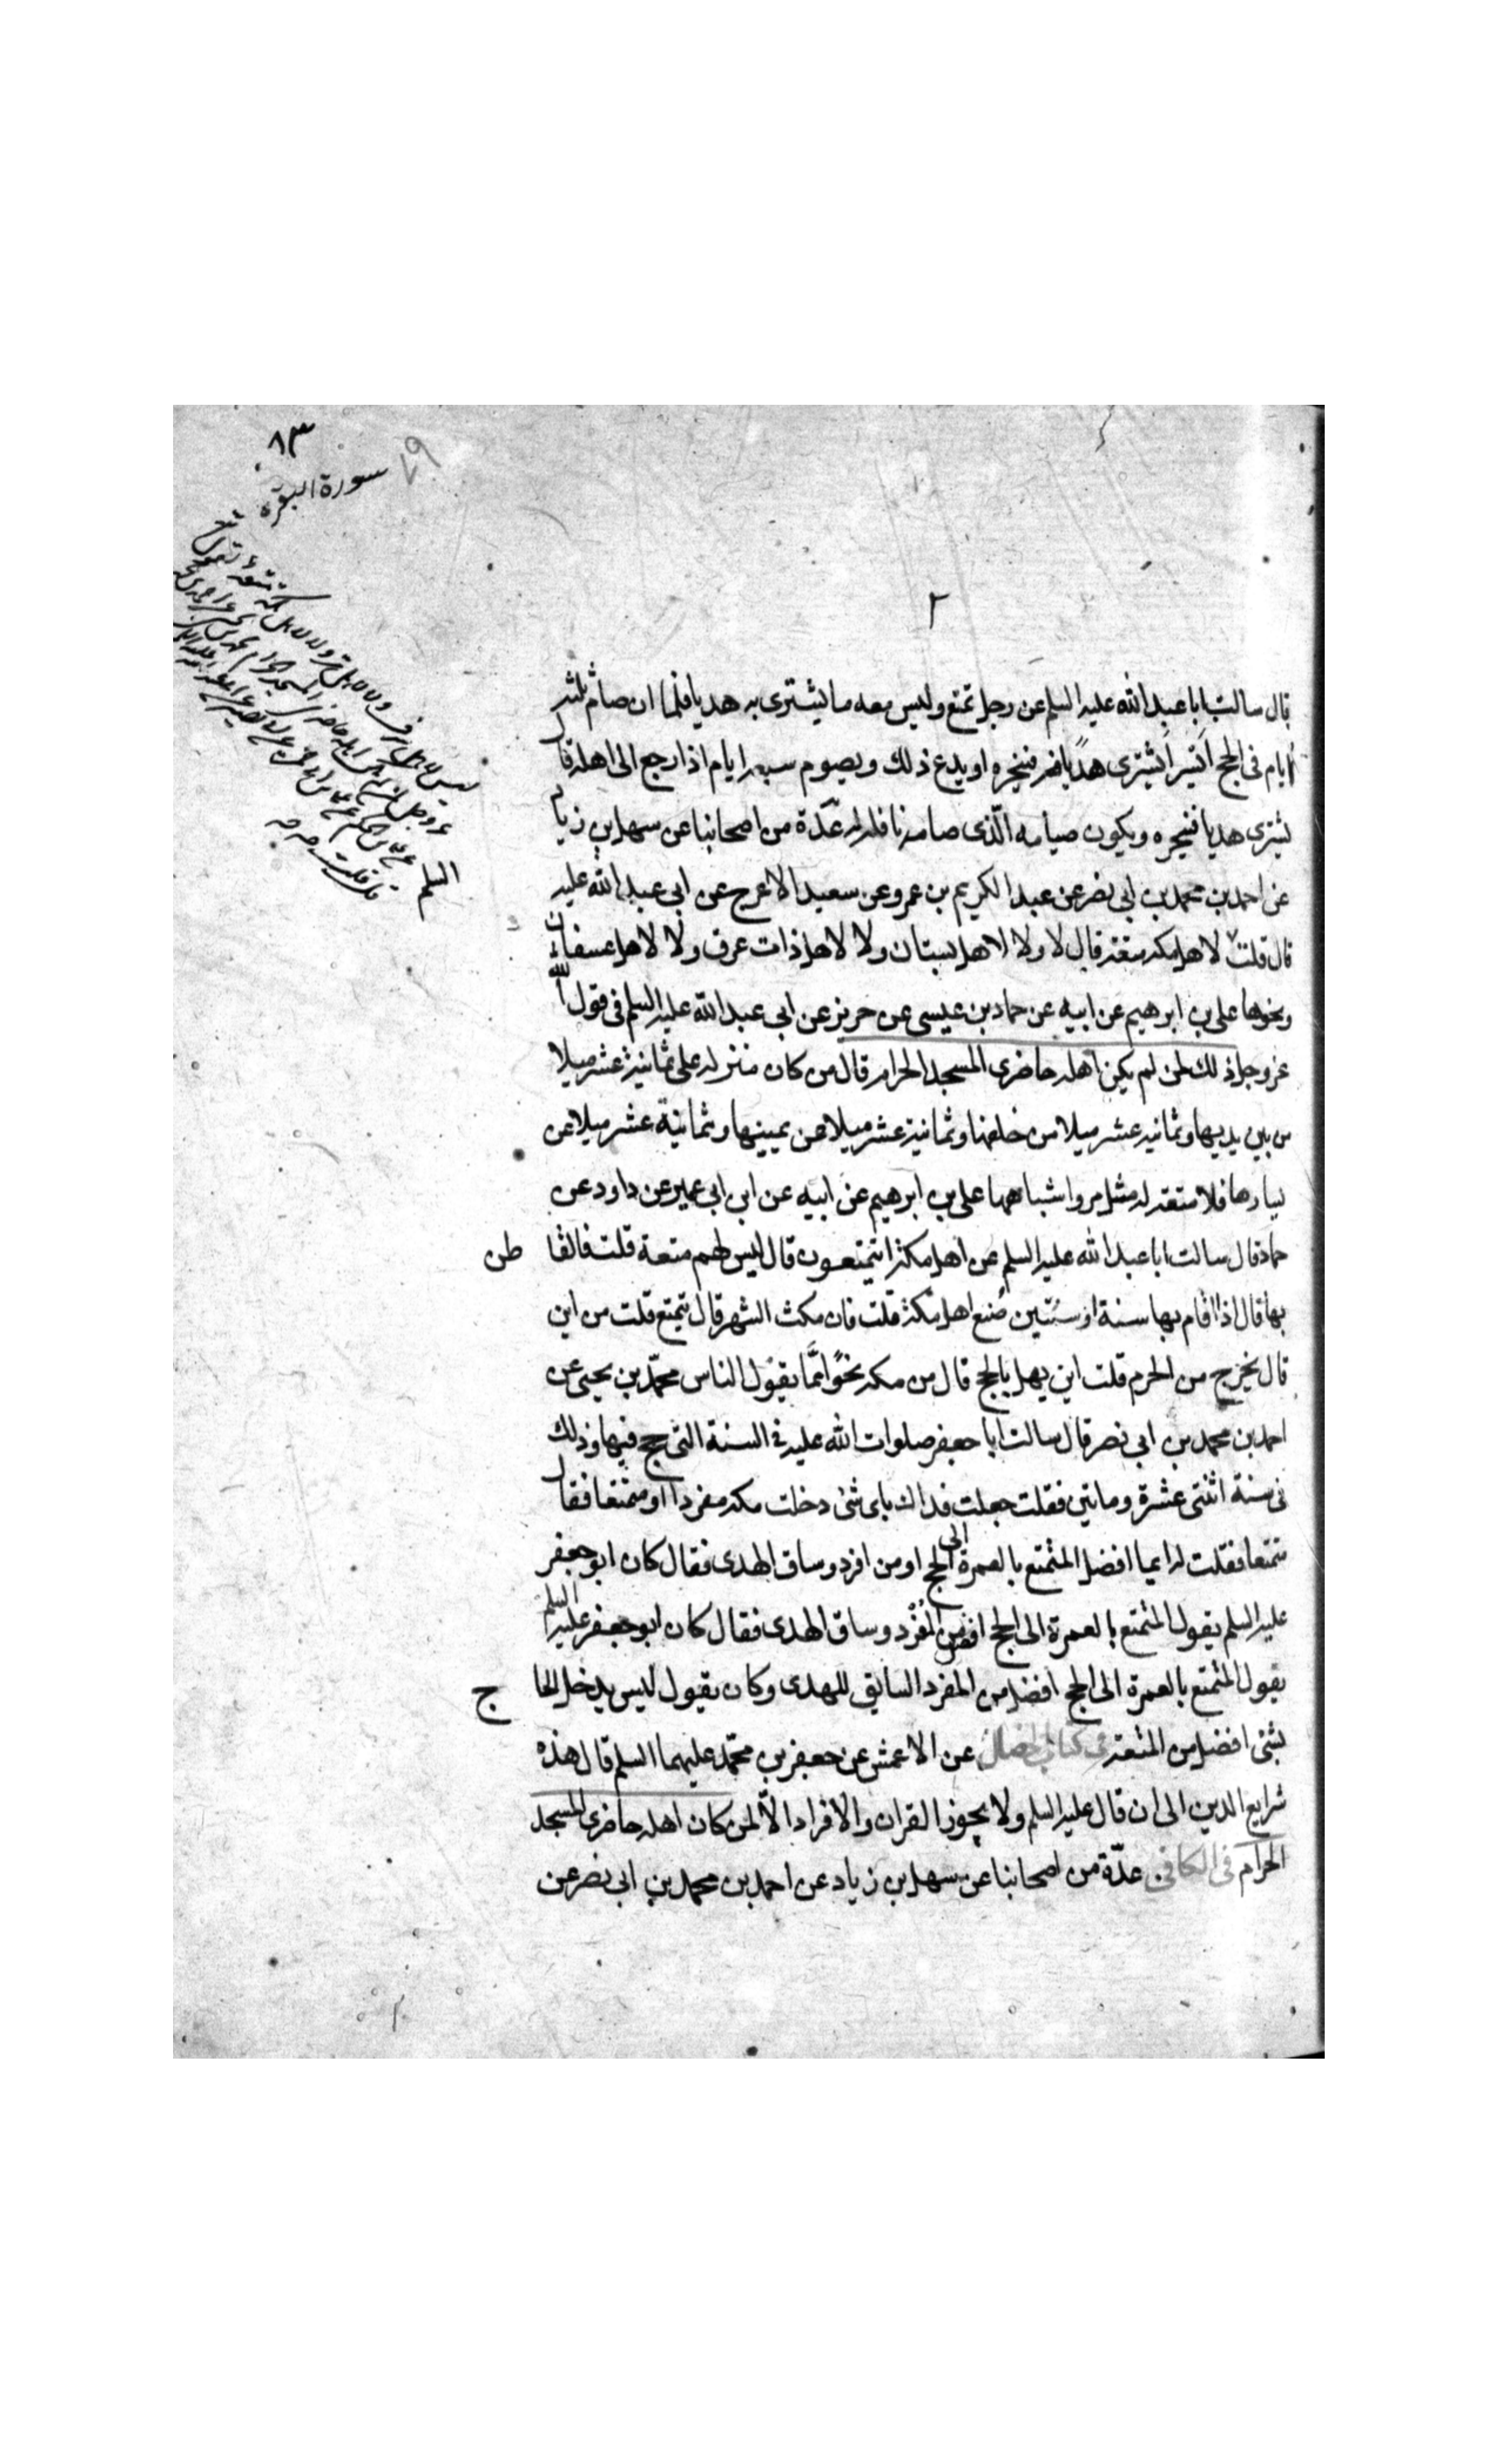 ٨٣
سورة البقرة
٧٩
٢
قال سالت ابا عبد الله عليه السلم عن رجل تمتع وليس معه ما يشترى به هديا فلما ان صام ثلثة
ايام فى الحج ايسر ايشترى هديا فينحره او يدع ذلك ويصوم سبعة ايام اذا رجع الى اهله قال
يشترى هديا فينحره ويكون صيامه الذى صامه نافلة له عدّة من اصحابنا عن سهل بن زياد
عن احمد بن محمد بن ابى نصر عن عبد الكريم بن عمرو عن سعيد الاعرج عن ابى عبد الله عليه
قال قلت لاهل مكة متعة قال لا ولا لاهل بستان ولا لاهل ذات عرق ولا لاهل عسفان
ونحوها على بن ابرهيم عن ابيه عن حماد بن عيسى عن حريز عن ابى عبد الله عليه السلم فى قول الله
عز وجل ذلك لمن لم يكن اهله حاضرى المسجد الحرام قال من كان منزله على ثمانية عشر ميلا
من بين يديها وثمانية عشر ميلا من خلفها وثمانية عشر ميلا عن يمينها وثمانية عشر ميلا عن
يسارها فلا متعة له مثل مر واشباهها على بن ابرهيم عن ابيه عن ابن ابى عمير عن داود عن
حماد قال سالت ابا عبد الله عليه السلم عن اهل مكة ايتمتعون قال ليس لهم متعة قلت فالقا طن
بها قال اذا اقام بها سنة او سنتين صنع اهل مكة قلت فان مكث الشهر قال يتمتع قلت من اين
قال يخرج من الحرم قلت اين يهل بالحج قال من مكة نحوًا ممّا يقول الناس محمّد بن يحيى عن
احمد بن محمد بن ابى نصر قال سالت ابا جعفر صلوات الله عليه فى السنة التى حج فيها وذلك
فى سنة اثنتى عشرة وماتين فقلت جعلت فداك باى شئ دخلت مكة مفردا او متمتعا فقال
متمتعا فقلت له ايما افضل المتمتع بالعمرة الى الحج او من افرد وساق الهدى فقال كان ابو جعفر
عليه السلم يقول المتمتع بالعمرة الى الحج افضل من المُفْرد وساق الهدى فقال كان ابو جعفر عليه السلم
يقول المتمتع بالعمرة الى الحج افضل من المفرد السايق للهدى وكان يقول ليس يدخل الحا ج
بشئ افضل من المتعة فى كتاب الخصال عن الاعمش عن جعفر بن محمّد عليهما السلم قال هذه
شرايع الدين الى ان قال عليه السلم ولا يجوز القران والافراد الّا لمن كان اهله حاضرى المسجد
الحرام فى الكافى عدّة من اصحابنا عن سهل بن زياد عن احمد بن محمد بن ابى نصر عن